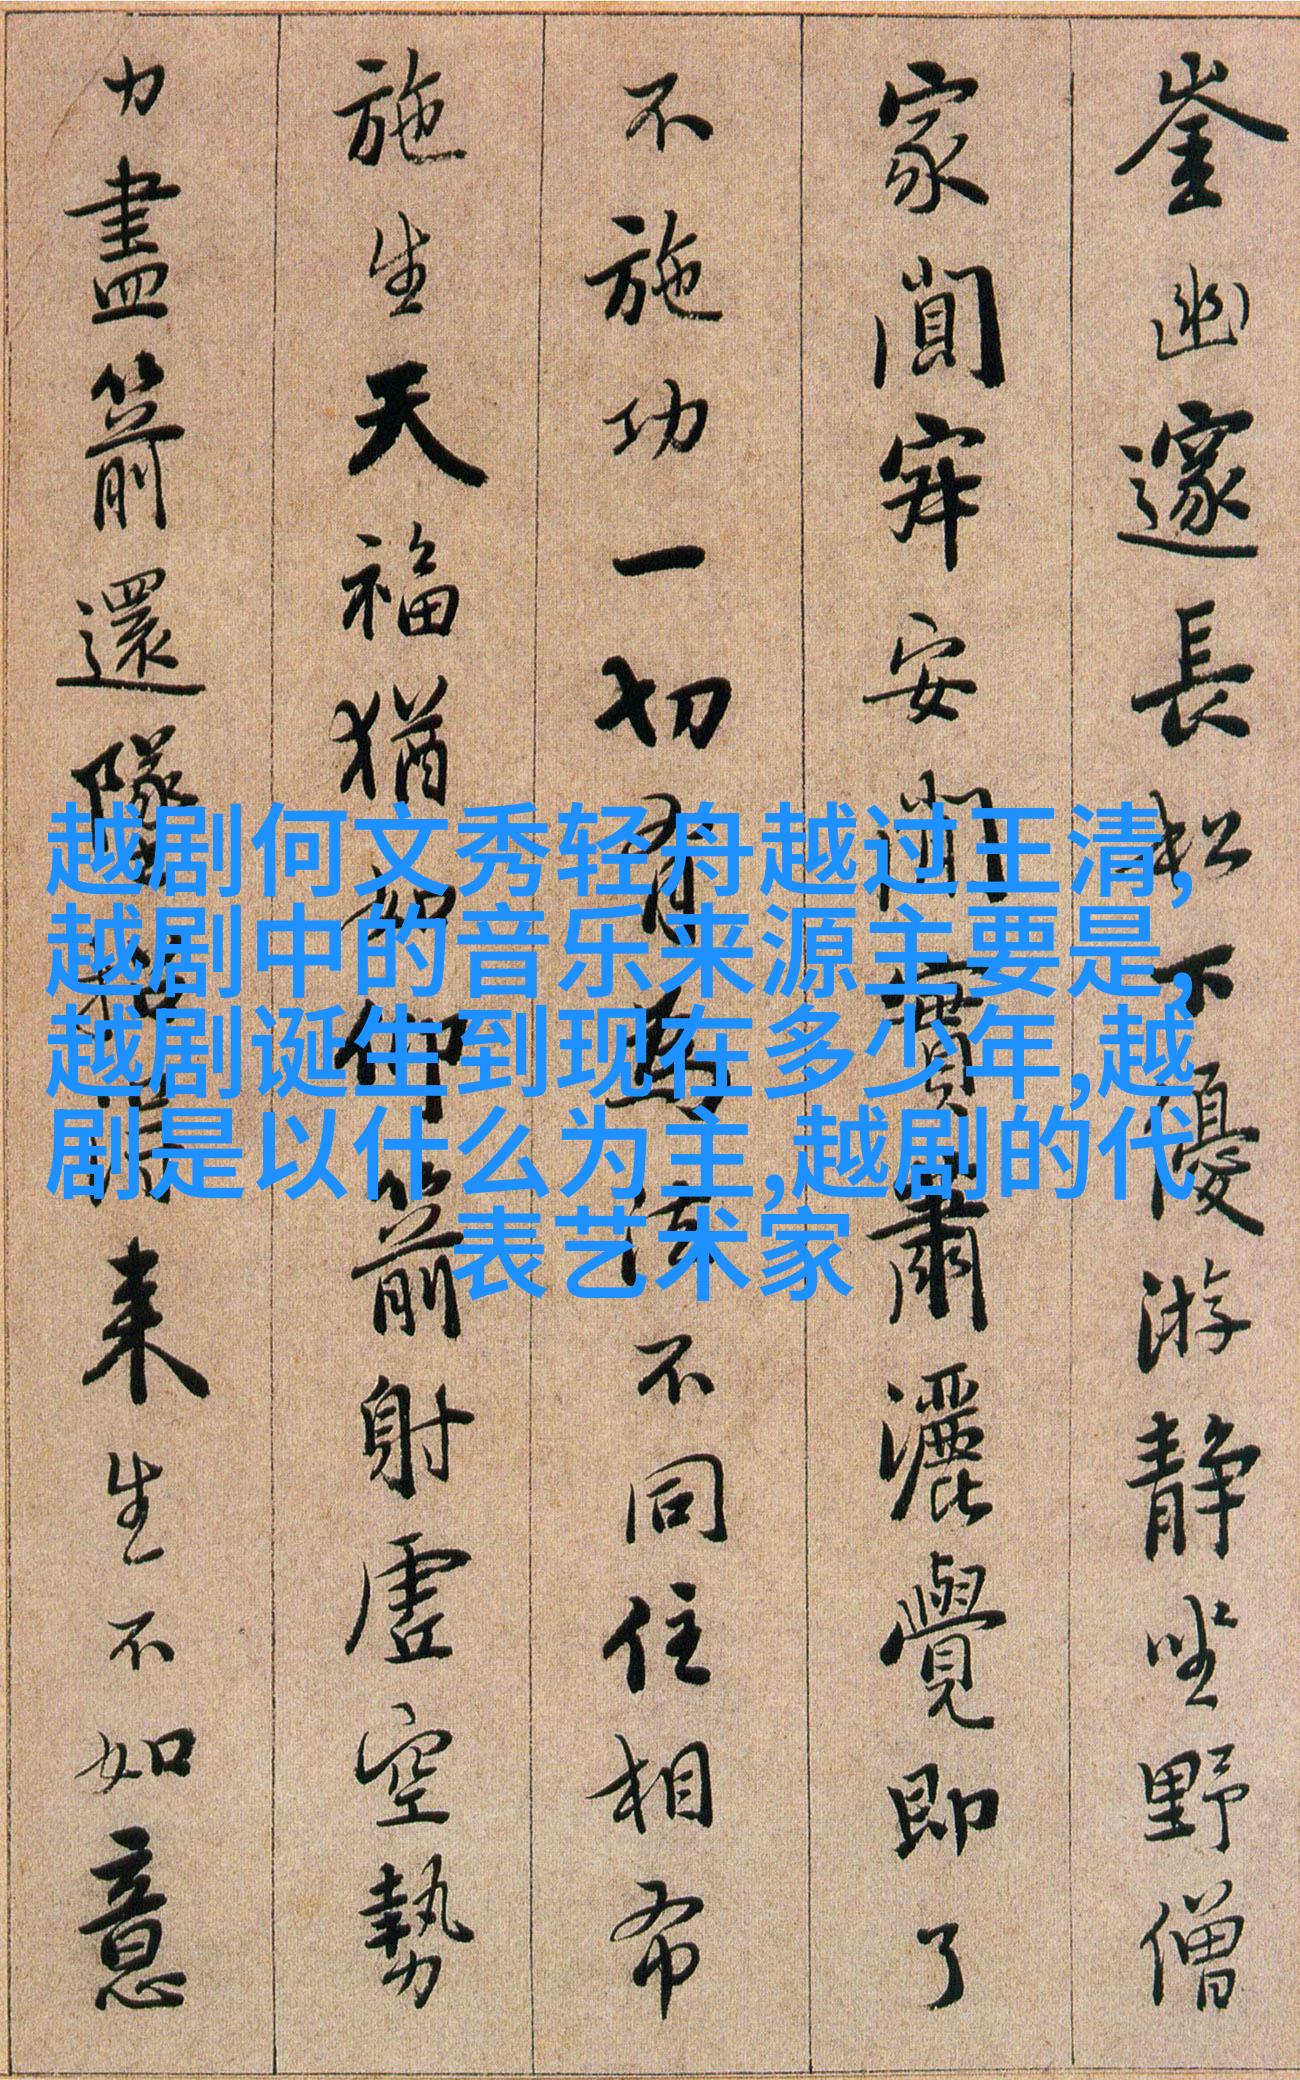 崟幽邃長松下優游静坐野僧
家闃寂安閑實蕭灑覺即了
不施功一切有為法不同住相布
施生天福猶如仰箭射虚空勢
力盡箭還墜招得来生不如意
越剧何文秀轻舟越过王清,
越剧中的音乐来源主要是,
越剧诞生到现在多少年,越
剧是以什么为主,越剧的代
表艺术家